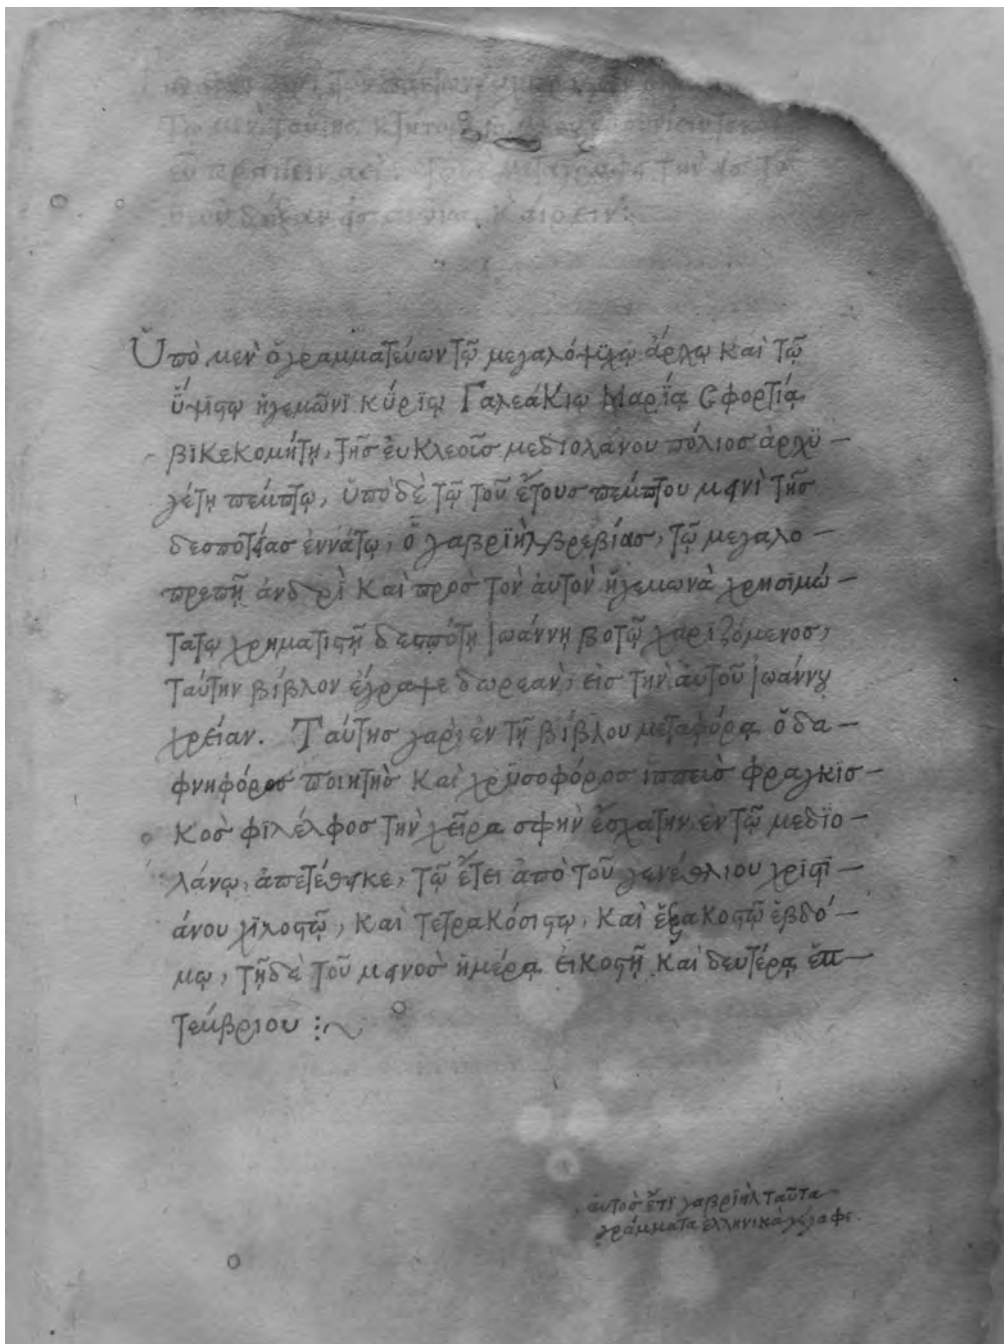 Ὑπὸ μεν ὁ γραμματεύων τῷ μεγαλόψύχῳ ἀρχῳ καὶ τῷ
ὕψίστῳ ἡγεμῶνι κύρίῳ Γαλεάκιῳ Μαρίᾳ Σφορτίᾳ
βϊκεκομήτῃ, τῆς ἐυκλεοῖς μεδιολάνου πόλιος ἀρχϋ-
γέτῃ πέμπτῳ, ὑπὸ δὲ τῷ τοῦ ἔτους πέμπτου μηνὶ τῆς
δεσποτείας ἐννάτῳ, ὁ γαβριὴλ βρεβίας, τῷ μεγαλο-
πρεπῇ ἀνδρὶ καὶ προς τὸν ἀυτὸν ἡγεμωνὰ χρησϊμώ-
τατῳ χρηματιστῇ δεσπότῃ Ιωάννῃ βοτῷ χαρϊζόμενος,
ταύτην βίβλον ἔγραψε δωρεαν, εἰς τὴν ἀυτοῦ Ιωάννου
χρείαν. Ταύτης γαρ ἐν τῇ βίβλου μεταφόρᾳ ὁ δα-
φνηφόρος ποιητὴς καὶ χρϋσοφόρος ἱππεὶς φραγκϊσ-
κος φϊλέλφος τὴν χεῖρα σφὴν ἔσχατην ἐν τῷ μεδϊο-
λάνῳ, ἀπετέθηκε, τῷ ἔτει ἀπὸ τοῦ γενέθλιου χριστϊ-
άνου χϊλοστῷ, καὶ τετρακόσιστῳ, καὶ ἑξακοστῷ ἑβδό-
μῳ, τῇδὲ τοῦ μηνος ἡμέρᾳ εικοστῇ καὶ δευτέρᾳ ἐπ-
τεμβριου :~
ἀυτος ἔτι γαβρϊὴλ ταῦτα
γράμματα ἑλληνικὰ γέγαφε